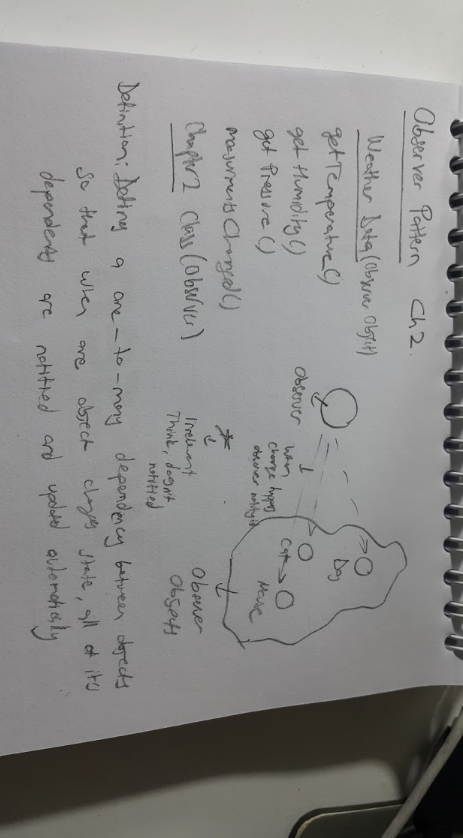 Observer Pattern Ch2.
Weather Data (Observer Object)
getTemperature()
get Humidity()
get Pressure()
measurementsChanged()
Chapter 2 Class (Observer)
Observer
when
change
observer
Dog
Cat
Mouse
Irrelevant
Think, doesn't
notified
Observer
Objects
Definition: Defining a one-to-many dependency between objects
so that when one object changes state, all of its
dependents are notified and updated automatically